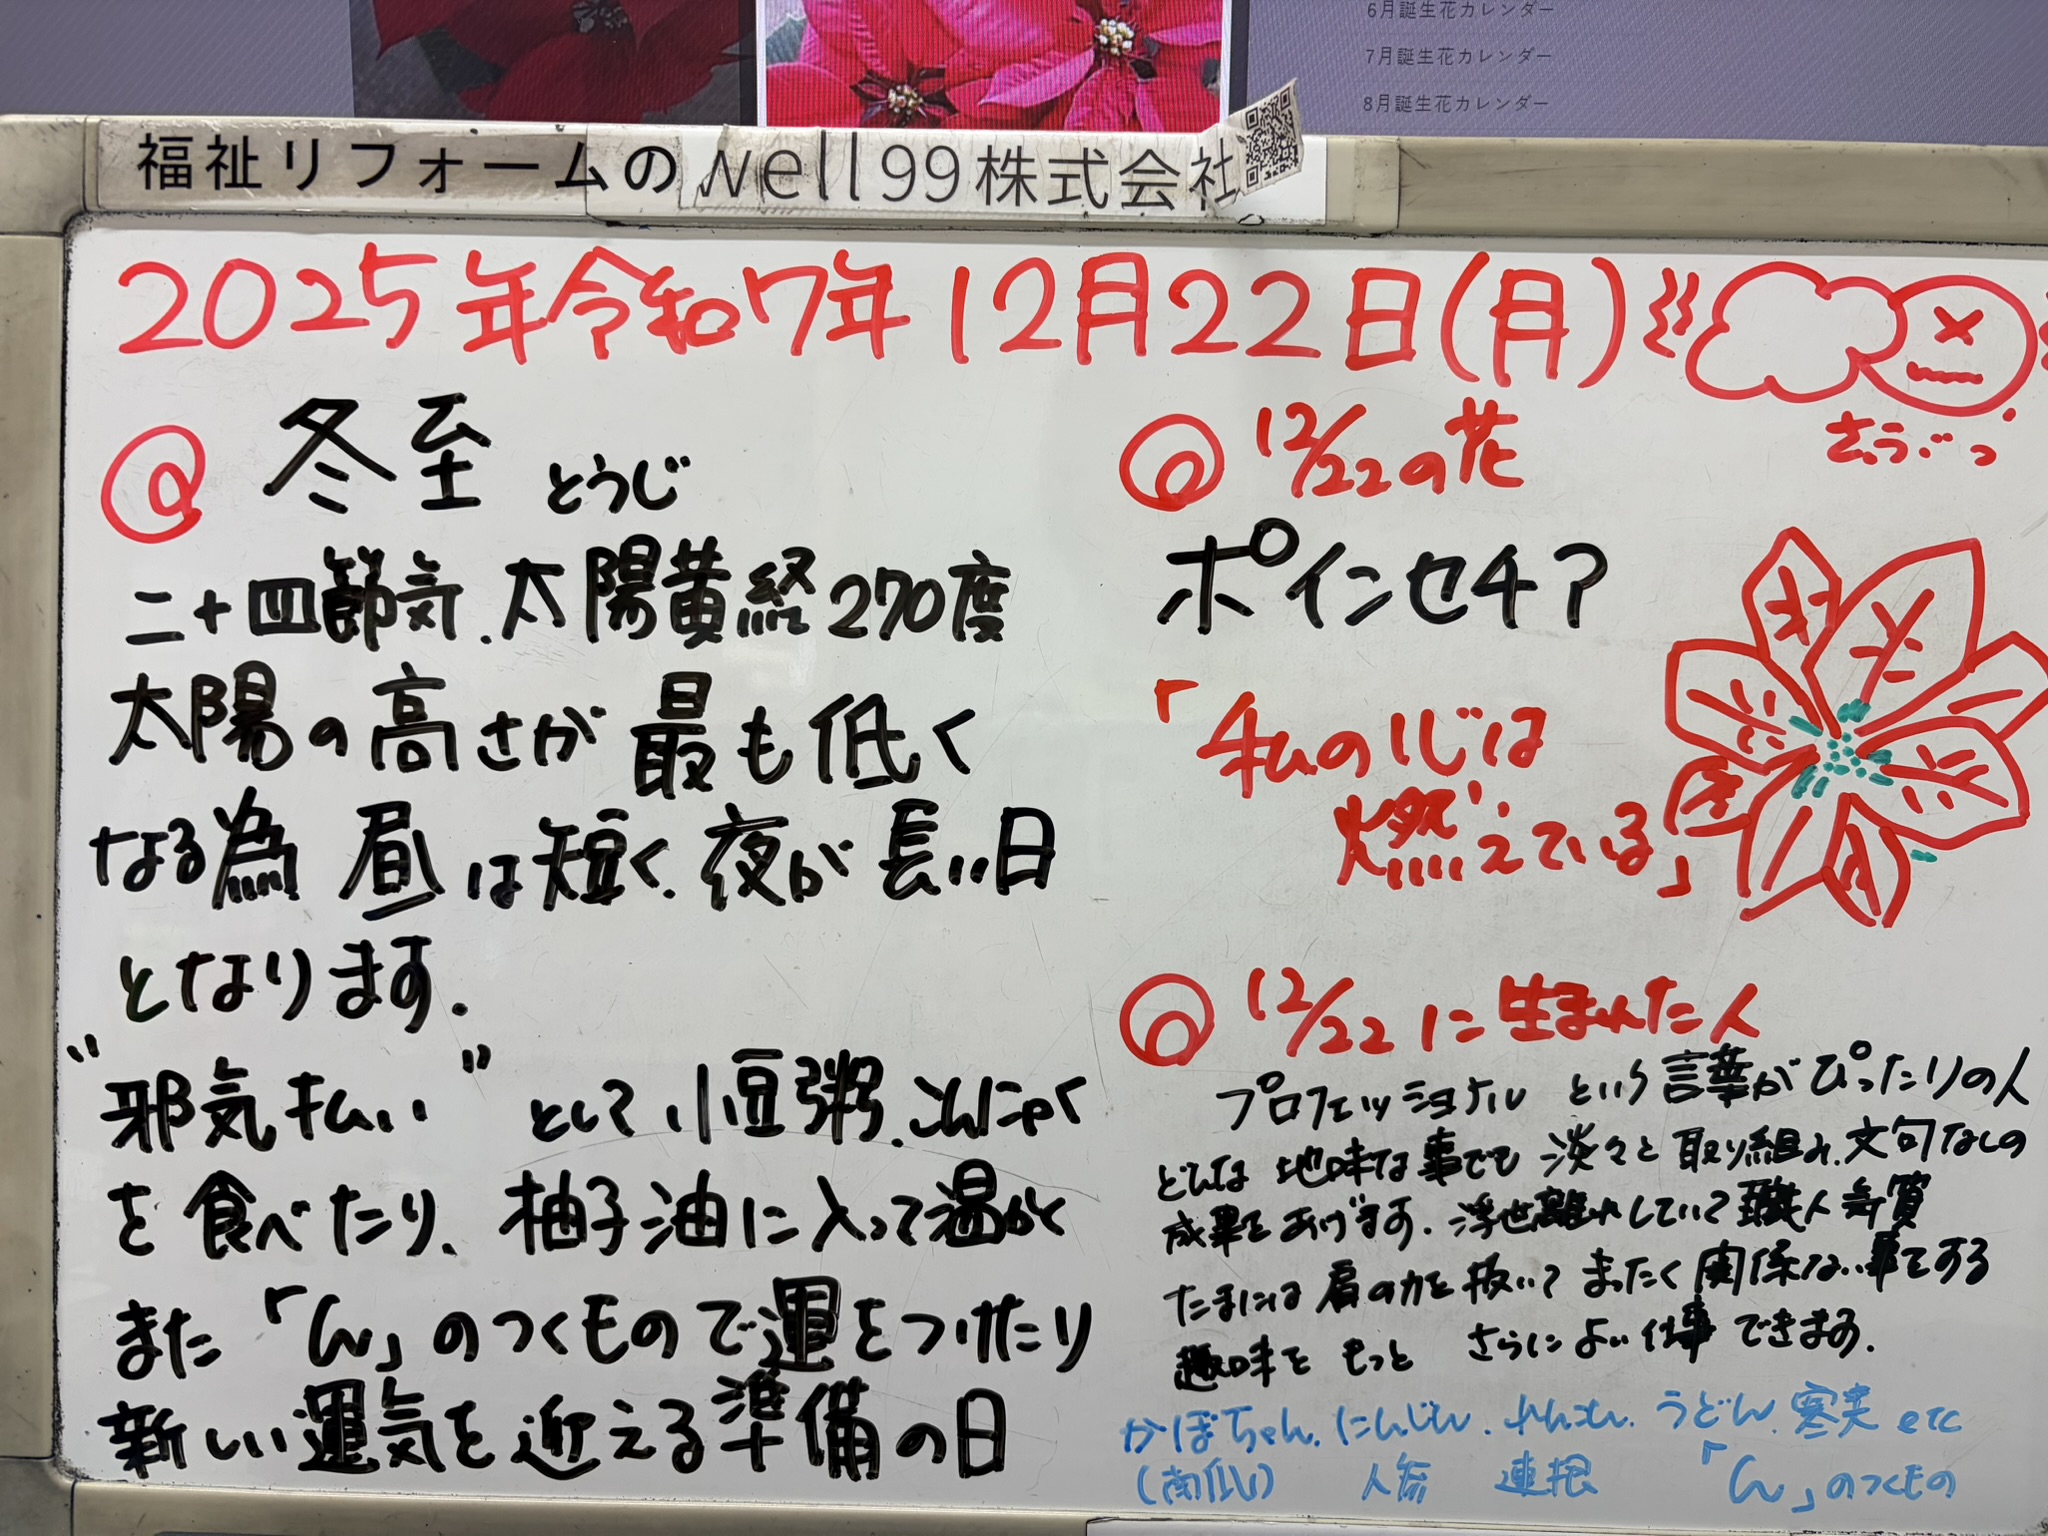 6月誕生花カレンダー
7月誕生花カレンダー
8月誕生花カレンダー
福祉リフォームのwell99株式会社
2025年令和7年12月22日(月)
さぶっ
冬至 とうじ
二十四節気、太陽黄経270度
太陽の高さが最も低く
なる為 昼は短く、夜が長い日
となります。
"邪気払い"として小豆粥、こんにゃく
を食べたり、柚子油に入って温かく
また「ん」のつくもので運をつけたり
新しい運気を迎える準備の日
12/22の花
ポインセチア
「私の心は
燃えている」
12/22に生まれた人
プロフェッショナル という言葉がぴったりの人
どんな 地味な事でも 淡々と取り組み、文句なしの
成果をあげます。浮世離れしていて職人気質
たまには肩の力を抜いて まったく関係ない事をする
趣味を もっと さらによい仕事できます。
かぼちゃん、にんじん、れんこん、うどん、寒天 etc
(南瓜) 人参 連根 「ん」のつくもの